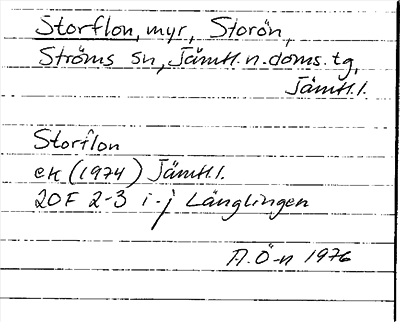 Storflon, myr, Storön,
Ströms sn, Jämtl. n. doms. tg,
Jämtl. l.
Storflon
ek (1974) Jämtl. l.
20F 2-3 i-j Länglingen
A. Ö-n 1976